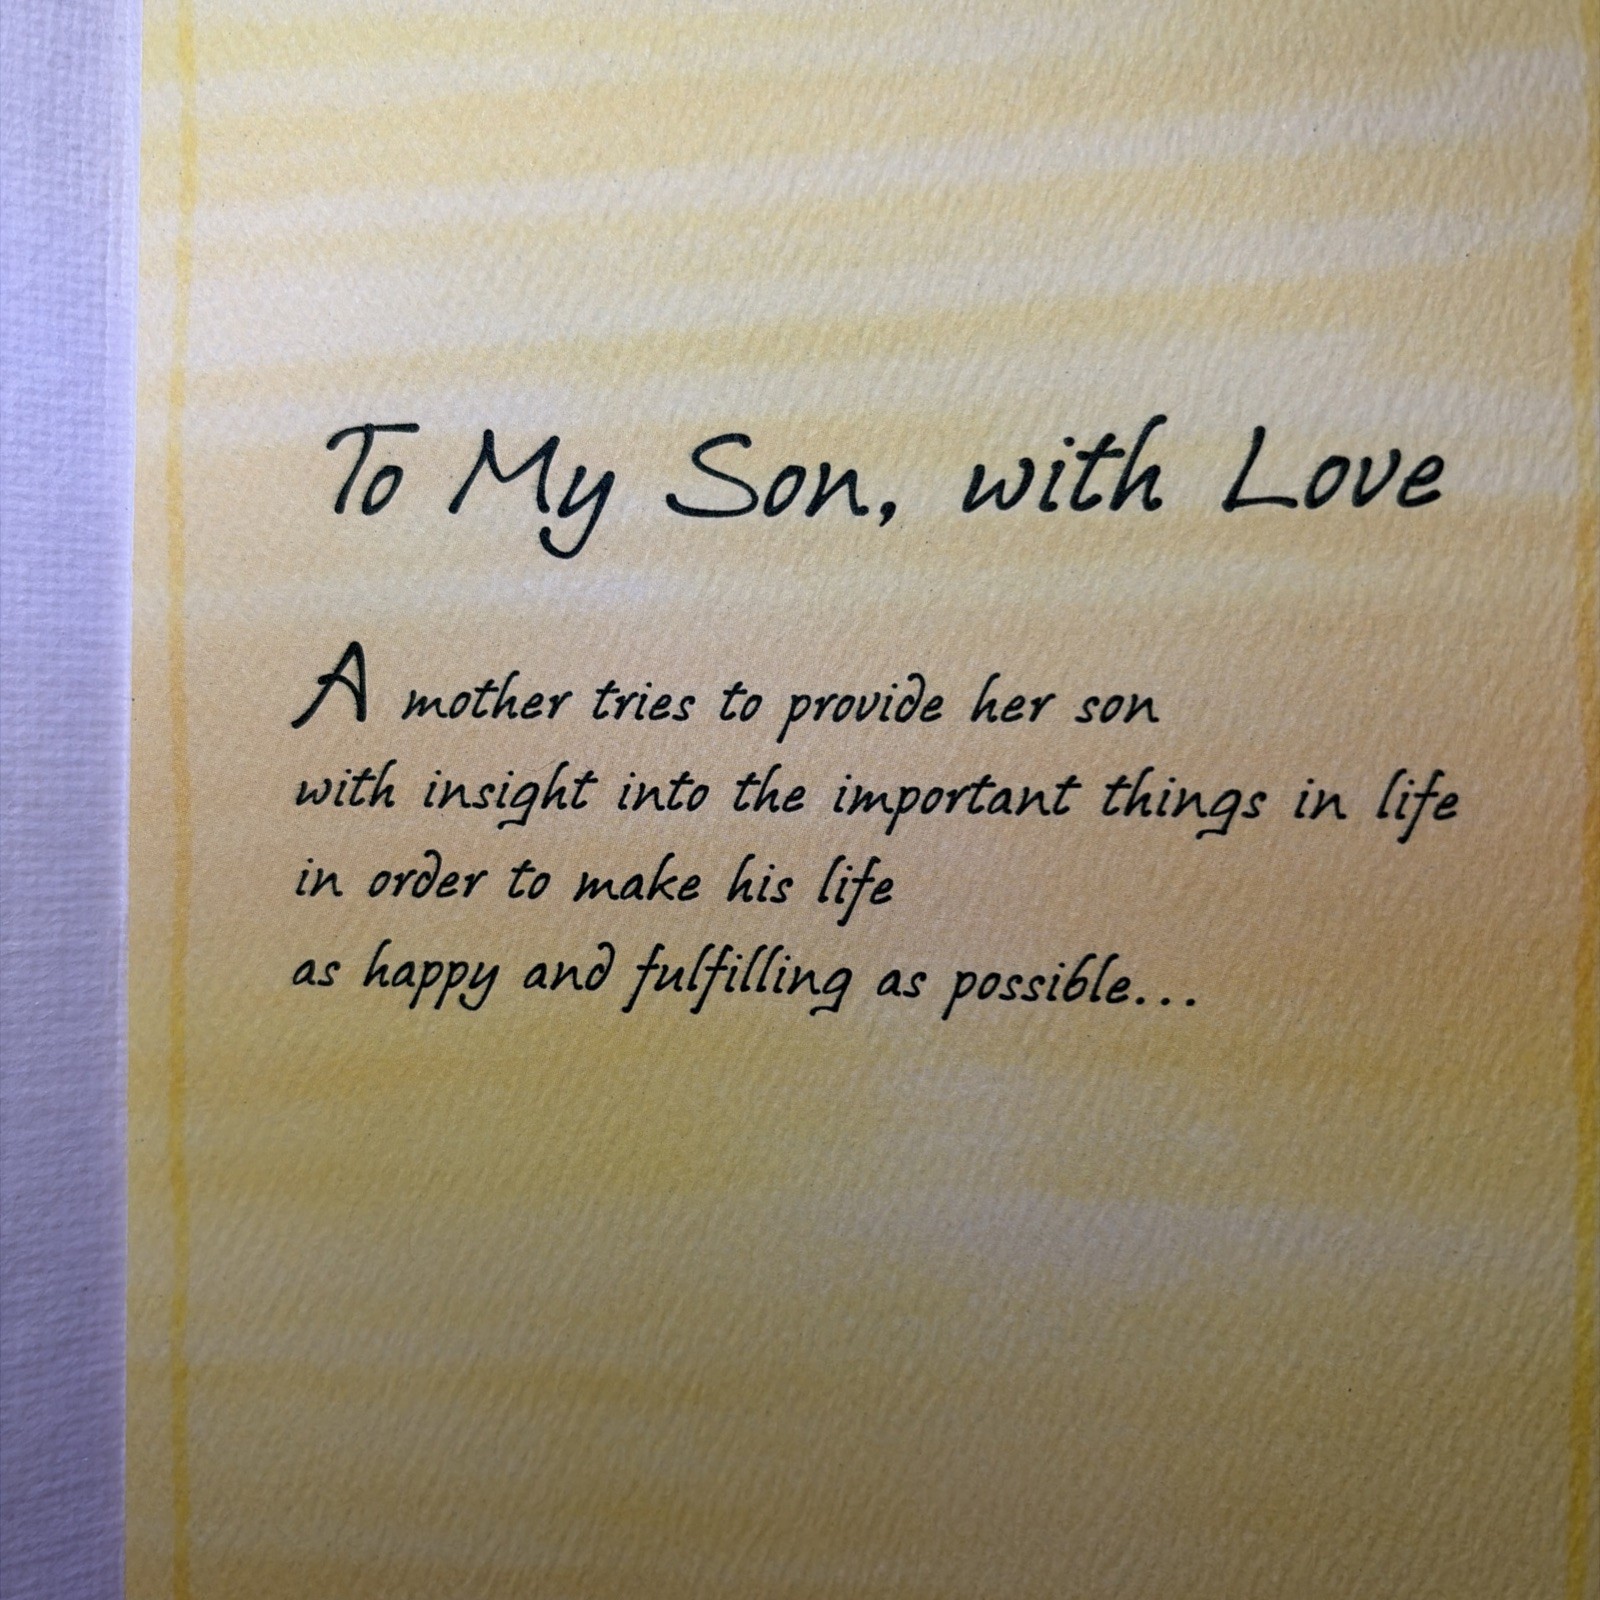 To My Son, with Love
A mother tries to provide her son
with insight into the important things in life
in order to make his life
as happy and fulfilling as possible...